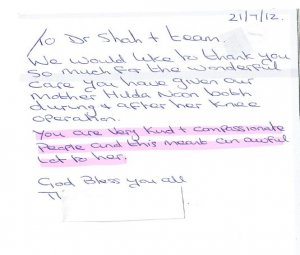 21/7/12.
To Dr Shah + team.
We would like to thank you
so much for the wonderful
care you have given our
mother Hilda Noon both
during + after her knee
operation.
You are very kind + compassionate
people and this meant an awful
lot to her.
God Bless you all